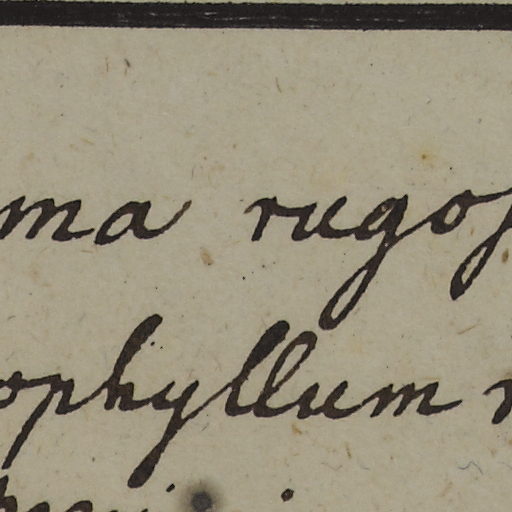 ma rugos
ophyllum